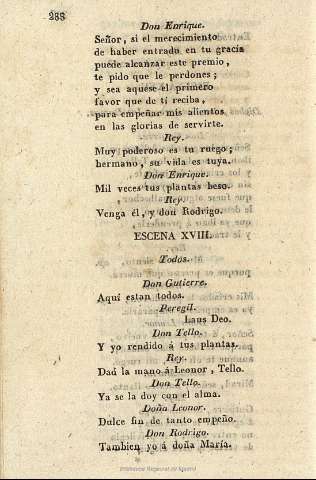 288
Don Enrique.
Señor, si el merecimiento
de haber entrado en tu gracia
puede alcanzar este premio,
te pido que le perdones;
y sea aquese el primero
favor que de tí reciba,
para empeñar mis alientos
en las glorias de servirte.
Rey.
Muy poderoso es tu ruego;
hermano, su vida es tuya.
Don Enrique.
Mil veces tus plantas beso.
Rey.
Venga él, y don Rodrigo.
ESCENA XVIII.
Todos.
Don Gutierre.
Aquí estan todos.
Peregil.
Laus Deo.
Don Tello.
Y yo rendido á tus plantas.
Rey.
Dad la mano á Leonor, Tello.
Don Tello.
Ya se la doy con el alma.
Doña Leonor.
Dulce fin de tanto empeño.
Don Rodrigo.
Tambien yo á doña María.